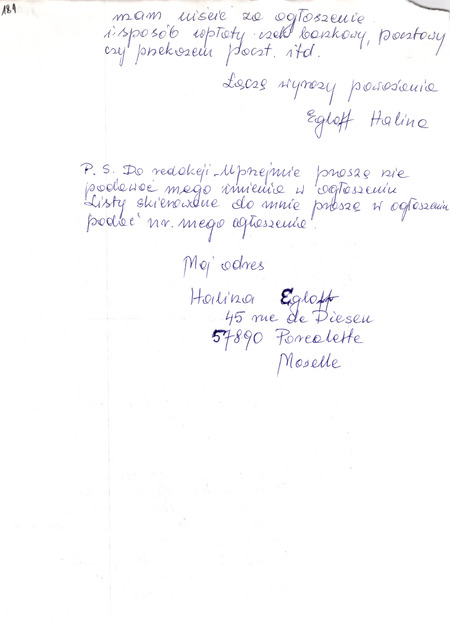 181
mam uiście za ogłoszenie
i sposób wpłaty czek bankowy, pocztowy
czy przekazem poczt. itd.
Łączę wyrazy poważania
Egloff Halina
P. S. Do redakcji - Uprzejmie proszę nie
podawać mego imienia w ogłoszeniu
Listy skierowane do mnie proszę w ogłoszeniu
podać nr. mego ogłoszenia.
Moj adres
Halina Egloff
45 rue de Diesen
57890 Porcelette
Moselle